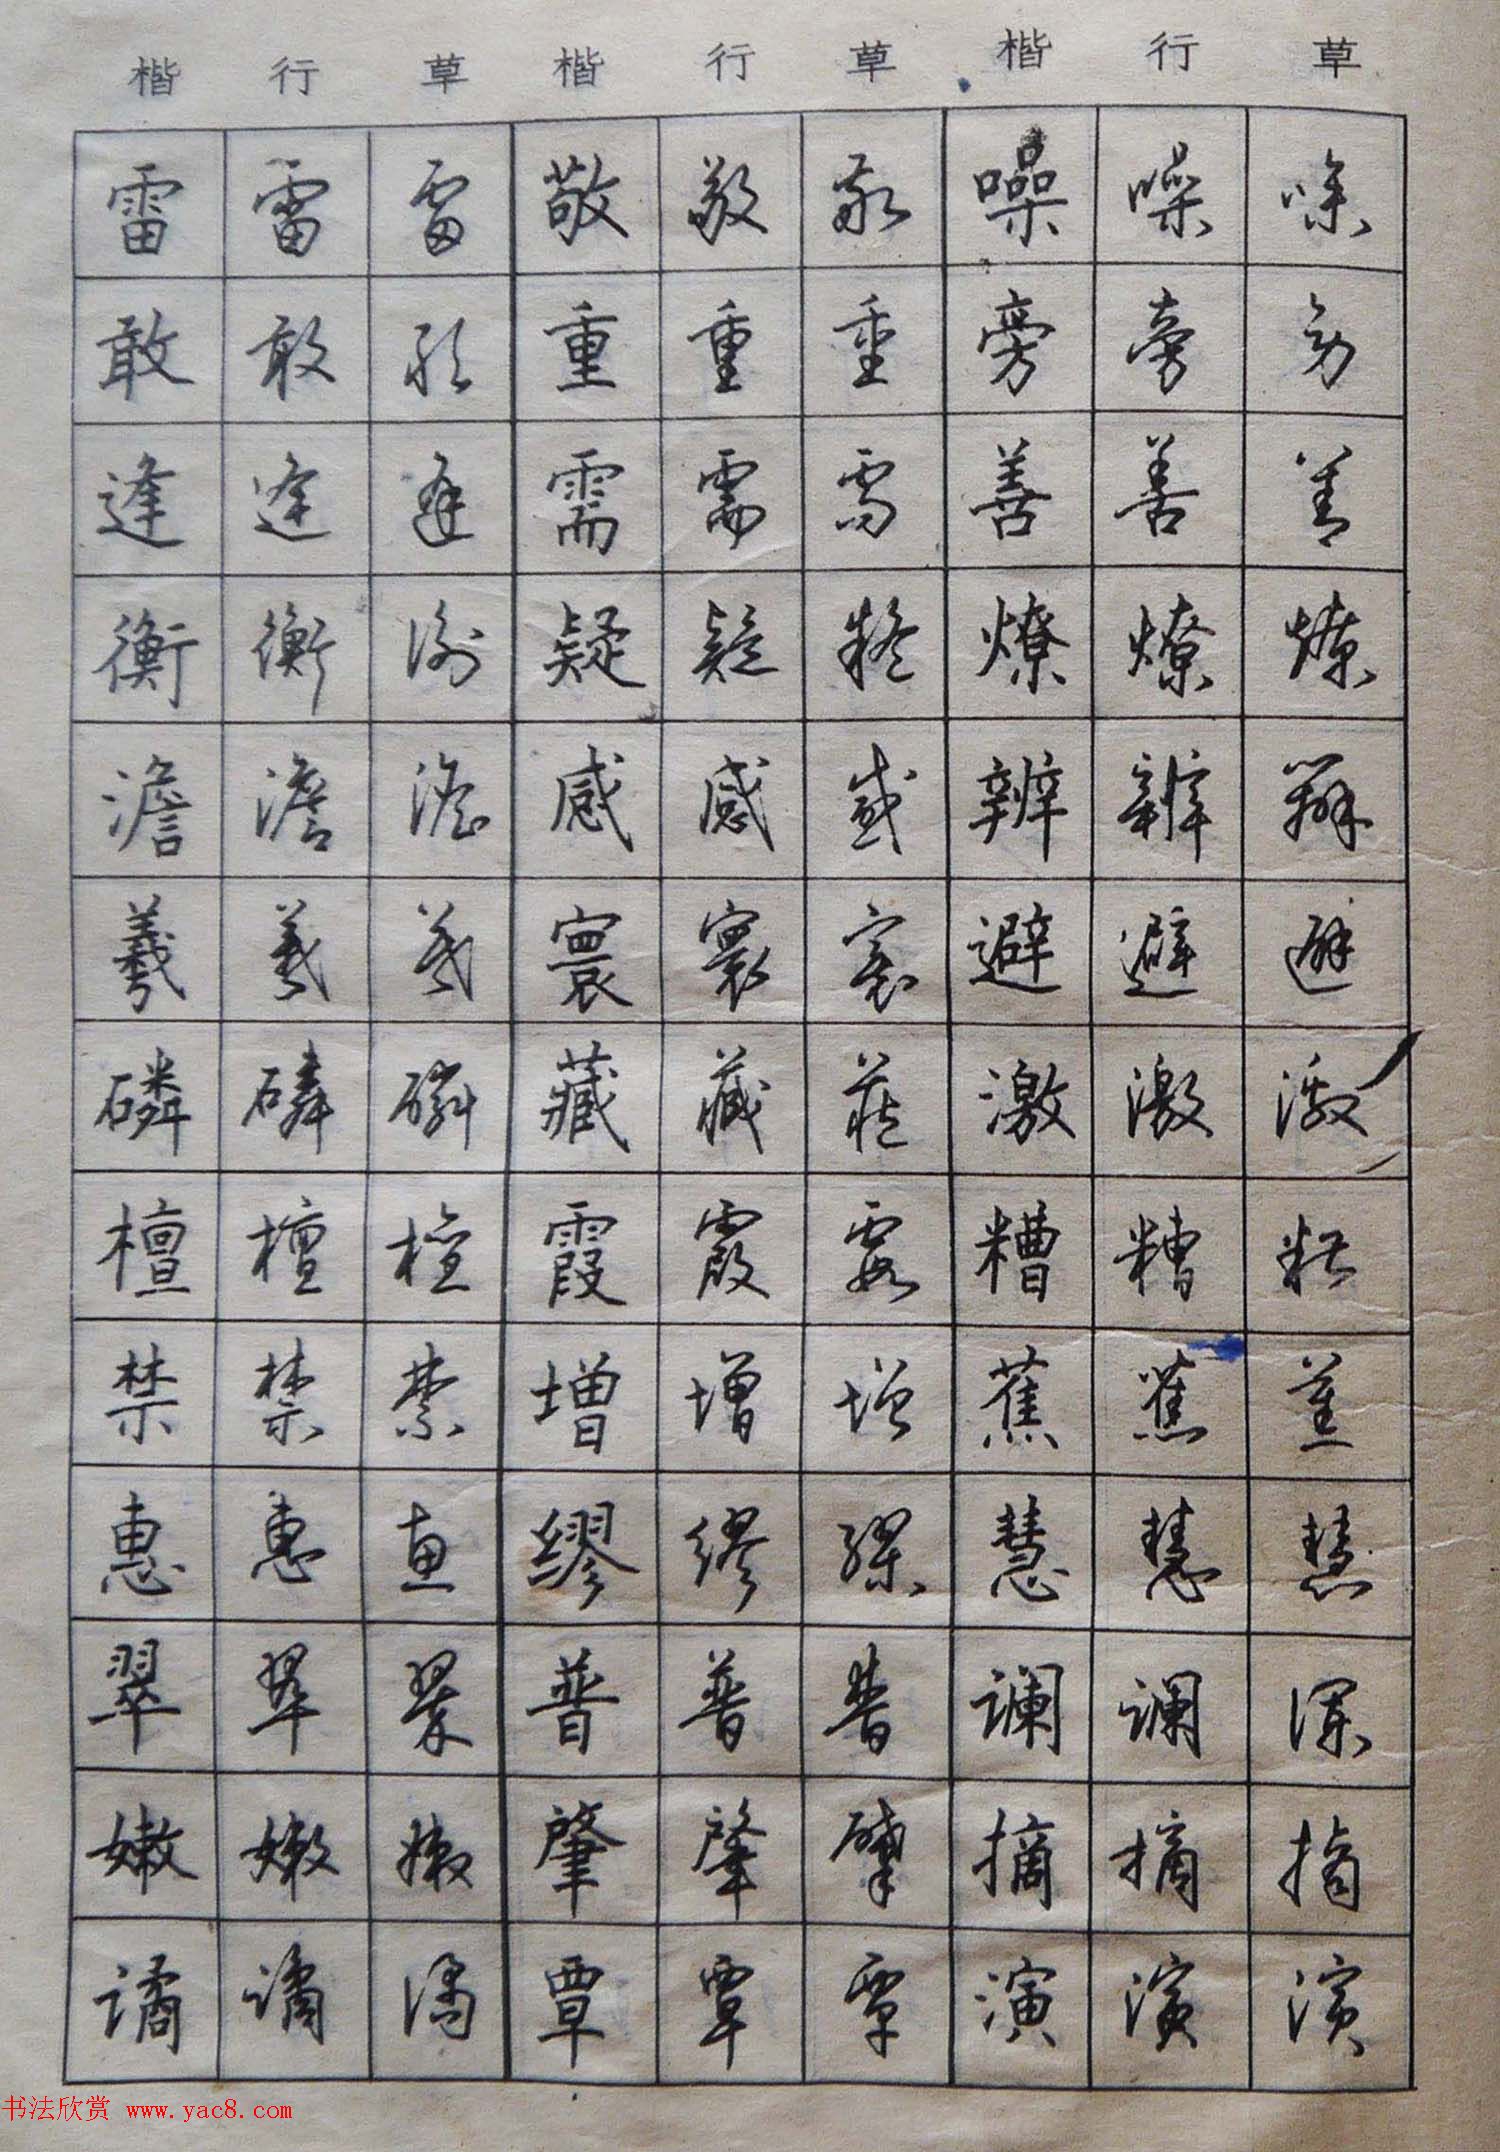 楷 行 草 楷 行 草 楷 行 草
雷 雷 雷 敬 敬 敬 噪 噪 噪
敢 敢 敢 重 重 重 旁 旁 旁
逢 逢 逢 需 需 需 善 善 善
衡 衡 衡 疑 疑 疑 燎 燎 燎
澹 澹 澹 感 感 感 辨 辨 辨
羲 羲 羲 寰 寰 寰 避 避 避
磷 磷 磷 藏 藏 藏 激 激 激
檀 檀 檀 霞 霞 霞 糟 糟 糟
禁 禁 禁 增 增 增 蕉 蕉 蕉
惠 惠 惠 缪 缪 缪 慧 慧 慧
翠 翠 翠 普 普 普 谰 谰 谰
嫩 嫩 嫩 肇 肇 肇 摘 摘 摘
谲 谲 谲 覃 覃 覃 演 演 演
书法欣赏 www.yac8.com